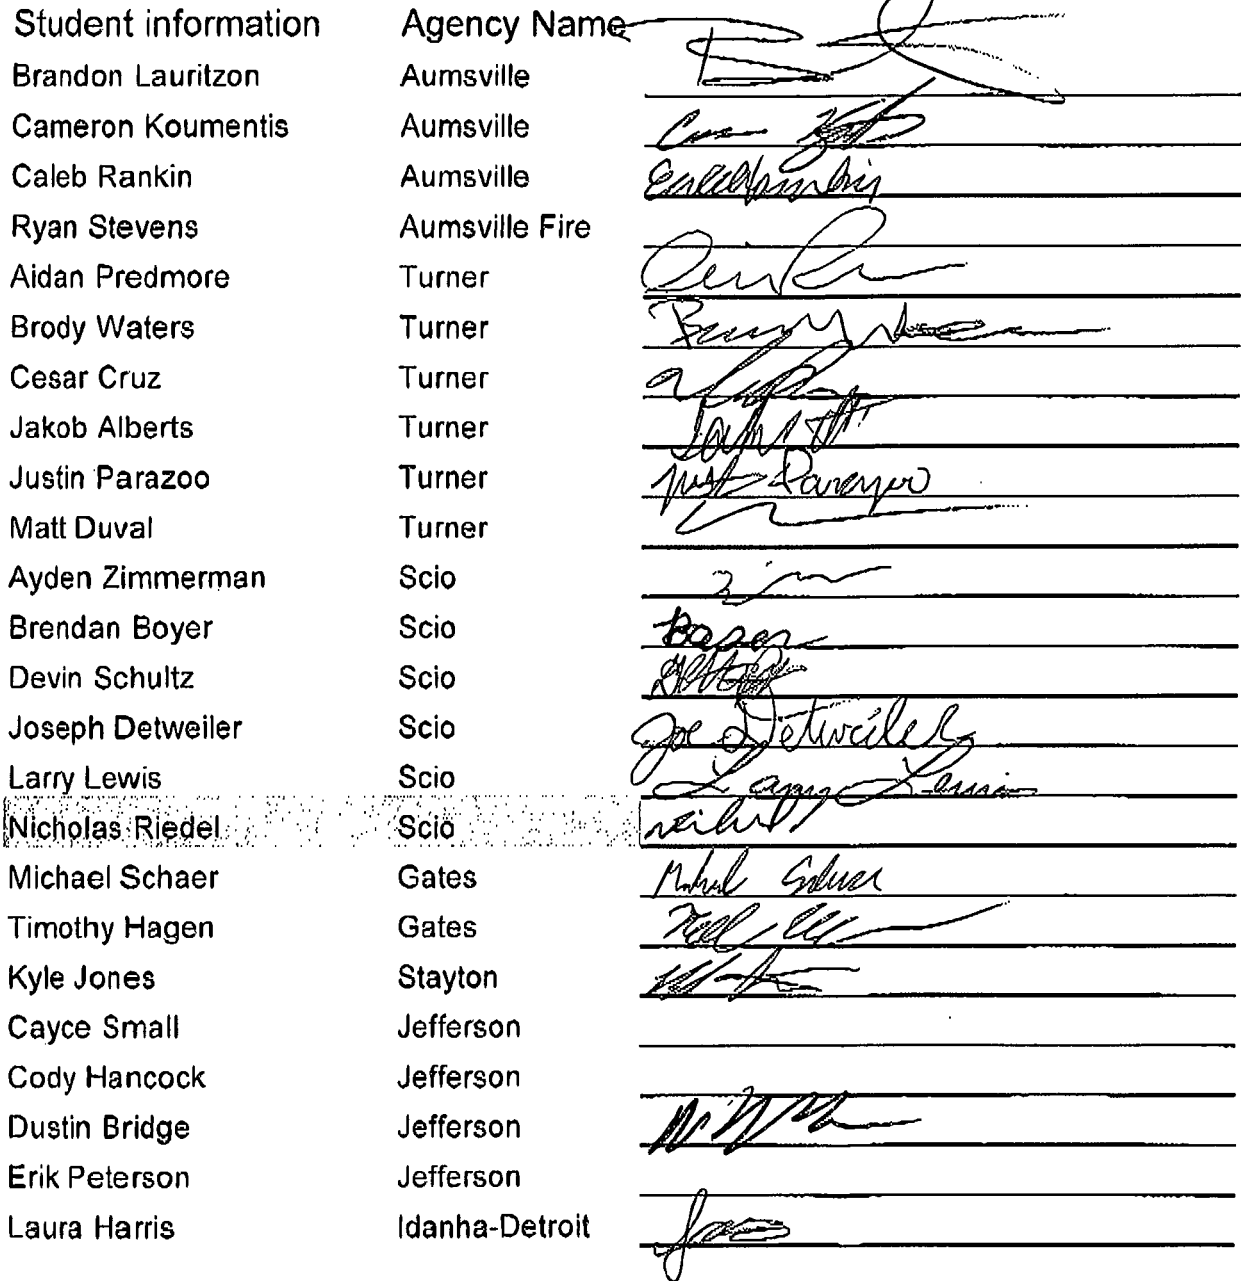 Student information Agency Name
Brandon Lauritzon Aumsville
Cameron Koumentis Aumsville
Caleb Rankin Aumsville
Ryan Stevens Aumsville Fire
Aidan Predmore Turner
Brody Waters Turner
Cesar Cruz Turner
Jakob Alberts Turner
Justin Parazoo Turner
Matt Duval Turner
Ayden Zimmerman Scio
Brendan Boyer Scio
Devin Schultz Scio
Joseph Detweiler Scio Joe Detweiler
Larry Lewis Scio Larry Lewis
Nicholas Riedel Scio
Michael Schaer Gates
Timothy Hagen Gates
Kyle Jones Stayton
Cayce Small Jefferson
Cody Hancock Jefferson
Dustin Bridge Jefferson
Erik Peterson Jefferson
Laura Harris Idanha-Detroit